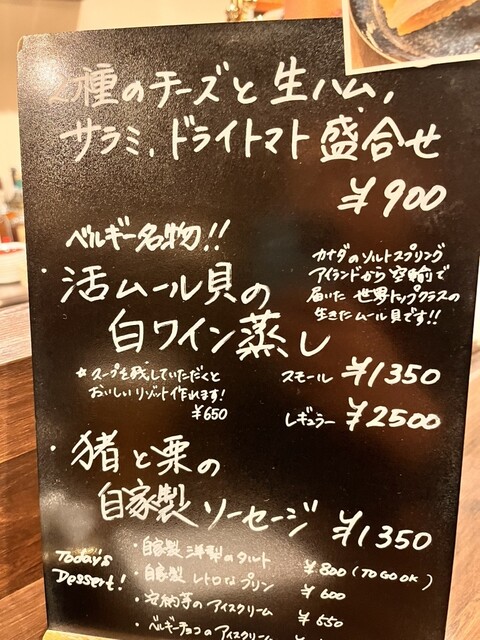 2種のチーズと生ハム,
サラミ、ドライトマト盛合せ
¥900
ベルギー名物!!
・活ムール貝の
白ワイン蒸し
カナダのソルトスプリング
アイランドから空輸で
届いた世界トップクラスの
生きたムール貝です!!
☆スープを残していただくと
おいしいリゾット作れます!
¥650
スモール ¥1350
レギュラー ¥2500
・猪と栗の
自家製ソーセージ ¥1350
Today's
Dessert!
・自家製 洋梨のタルト ¥800 (TO GO OK)
・自家製 レトロなプリン ¥600
・安納芋のアイスクリーム ¥550
・ベルギーチョコのアイスクリーム